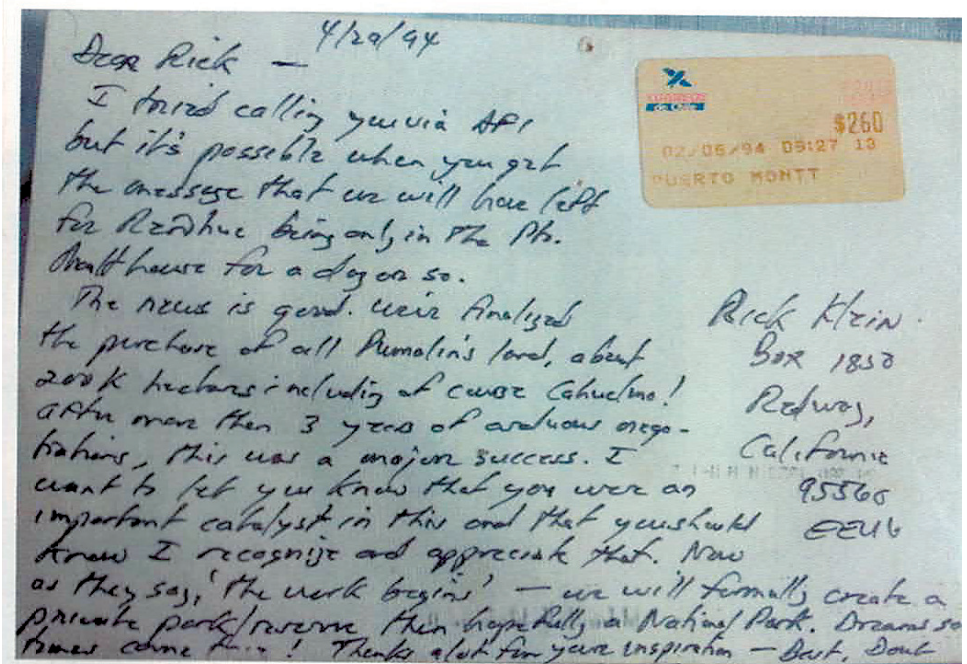 4/29/94
Dear Rick —
I tried calling you via AFI
but it's possible when you get
the message that we will have left
for Reñihue being only in the Pto.
Montt house for a day or so.
The news is good. We've finalized
the purchase of all Pumalin's land, about
200K hectares including of course Cahuelmo!
After more than 3 years of arduous nego-
tiations, this was a major success. I
want to let you know that you were an
important catalyst in this and that you should
know I recognize and appreciate that. Now
as they say, 'the work begins' — we will formally create a
private park/reserve then hopefully a National Park. Dreams so
times come ! Thanks alot for your inspiration — Best, Doug
CORREOS
de Chile
$260
02/05/94 09:27 13
PUERTO MONTT
Rick Klein.
Box 1850
Redway,
California
95560
EEUU